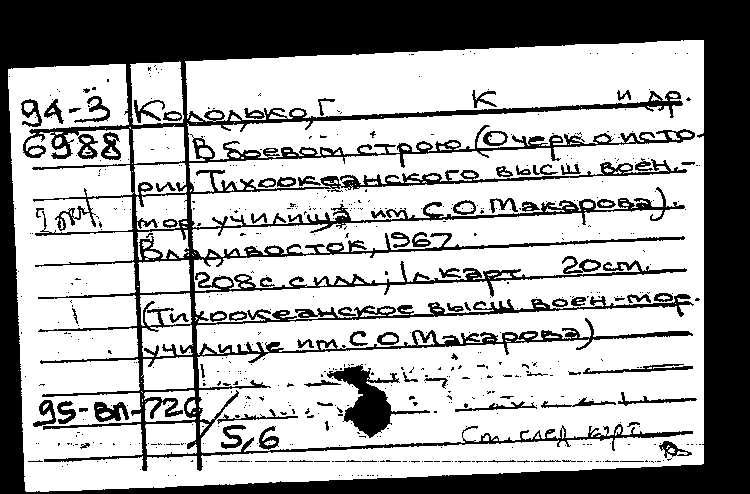 94-3 Колодько, Г. К и др.
6988 В боевом строю. (Очерк о исто-
рии Тихоокеанского высш. воен.-
мор. училища им. С.О. Макарова).
Владивосток, 1967.
208 с. с илл.; 1 л. карт. 20 см.
(Тихоокеанское высш воен.-мор.
училище им. С.О. Макарова)
95-ВП-726
5,6 См. след карт.